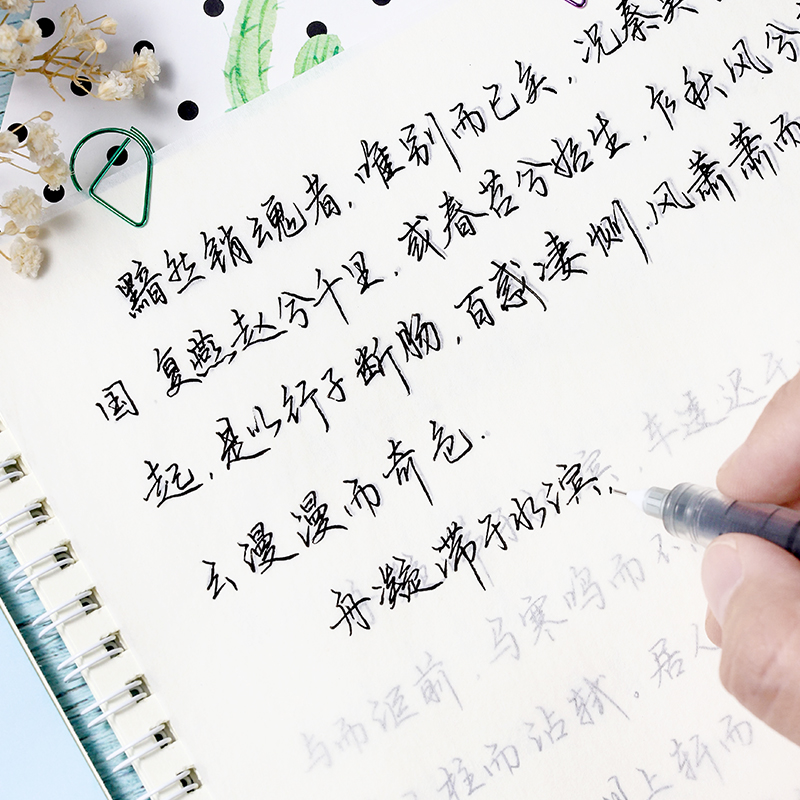 黯然销魂者，唯别而已矣，况秦吴
国复燕赵兮千里，或春苔兮始生，乍秋风兮
起，是以行子断肠，百感凄恻，风萧萧而
云漫漫而奇色.
舟凝滞于水滨，车逶迟于
与而讵前，马寒鸣而不
柱而沾轼。居人
上轩而